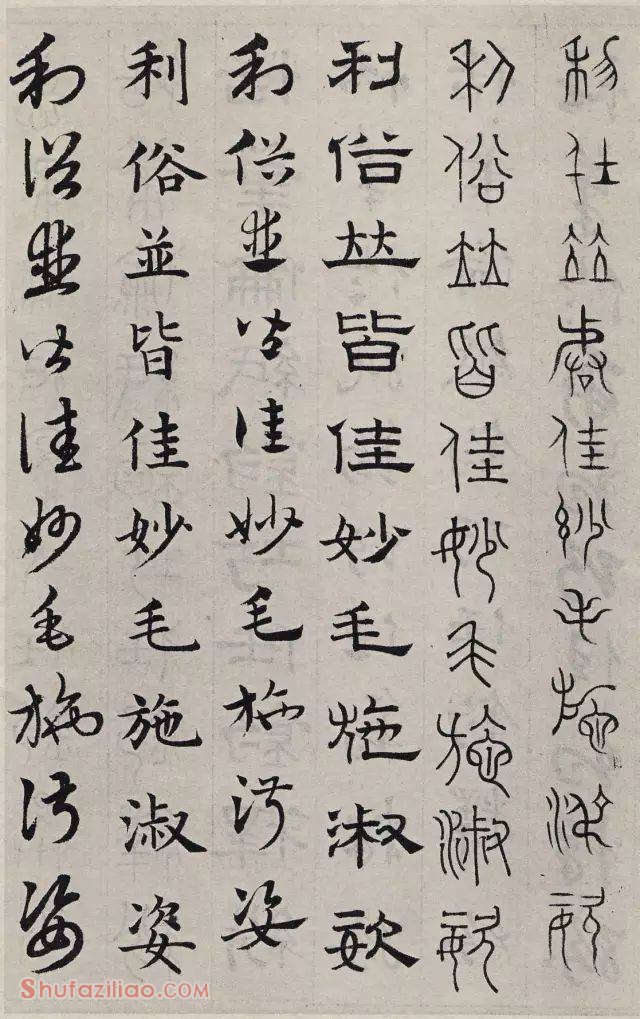 利俗並皆佳妙毛施淑姿
利俗並皆佳妙毛施淑姿
利俗並皆佳妙毛施淑姿
利俗並皆佳妙毛施淑姿
利俗並皆佳妙毛施淑姿
利俗並皆佳妙毛施淑姿
Shufaziliao.com